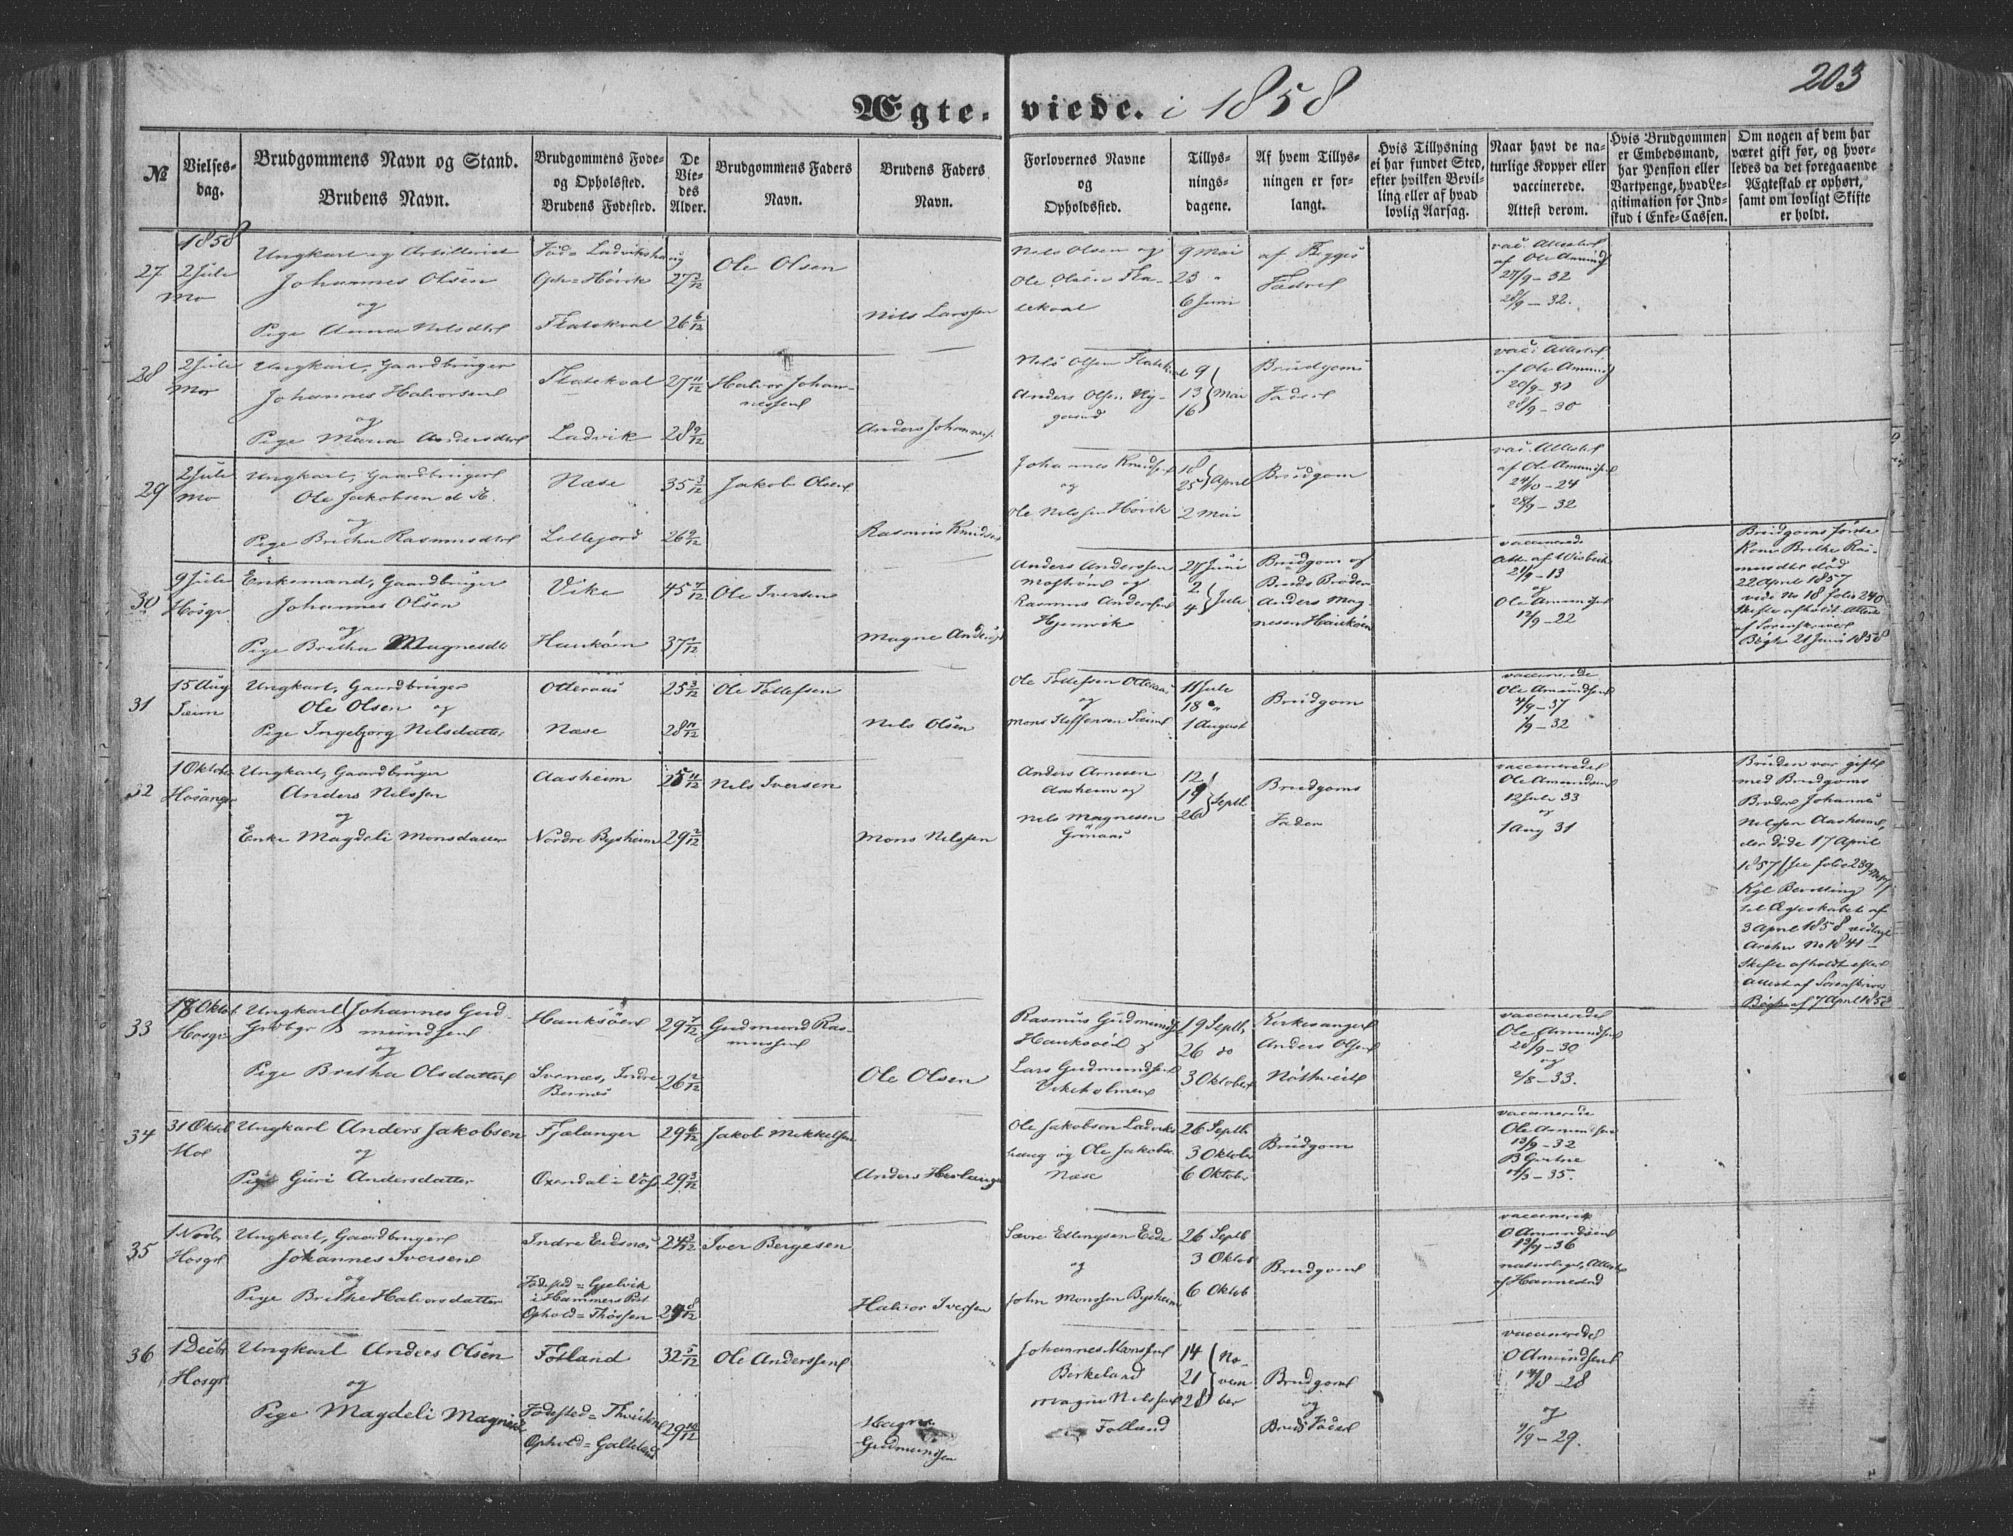 203
Ægte-viede. i 1858
№
Vielses-
dag.
Brudgommens Navn og Stand.
Brudens Navn.
Brudgommens Føde-
og Opholsted.
Brudens Fødested.
De
Vie-
des
Alder.
Brudgommens Faders
Navn.
Brudens Faders
Navn.
Forlovernes Navne
og
Opholdssted.
Tillys-
nings-
dagene.
Af hvem Tillys-
ningen er for-
langt.
Hvis Tillysning
ei har fundet Sted,
efter hvilken Bevil-
ling eller af hvad
lovlig Aarsag.
Naar havt de na-
turlige Kopper eller
vaccinerede.
Attest derom.
Hvis Brudgommen
er Embedsmand,
har Pension eller
Vartpenge, hvad Le-
gitimation for Ind-
skud i Enke-Cassen.
Om nogen af dem har
været gift før, og hvor-
ledes da det foregaaende
Ægteskab er ophørt,
samt om lovligt Skifte
er holdt.
1858
27
2 Jule
Mo
Ungkarl og Artillerist
Johannes Olsen
og
Pige Anna Nilsdtr
Fød= Ladvikshaug
Oph= Hørvik
Flatekval
27 3/12
26 6/12
Ole Olsen
Nils Larssen
Nils Olsen og
Ole Olsen Fla-
tekval
9 Mai
23 "
6 Juni
af Begges
Fædre
vac. Attest
af Ole Amunds
27/9 – 32
28/9 – 32.
28
2 Jule
Mo
Ungkarl, Gaardbruger
Johannes Halvorsen
og
Pige Maria Andersdtr
Flatekval
Ladvik
27 11/12
28 9/12
Halvor Johan-
nessen
Anders Johanness.
Nils Olsen Flatekval
Anders Olsen Ny-
gaard
9
13 Mai
16
Brudgoms
Fader
vac. Attest
af Ole Amunds
20/9 – 30
28/9 – 30
29
2 Jule
Mo
Ungkarl, Gaardbruger
Ole Jakobsen d. Æ.
og
Pige Britha Rasmusdtr
Næse
Lillefjord
35 3/12
26 9/12
Jakob Olsen
Rasmus Knudsen
Johannes Knudsen
og
Ole Nilssen Hørvik
18
25 April
2 Mai
Brudgom
vac. Attest
af Ole Amundsen
24/10 – 24
28/9 – 32
30
9 Jule
Hosgr
Enkemand, Gaardbruger
Johannes Olsen
og
Pige Britha Magnesdtr
Vike
Haukøen
45 7/12
37 5/12
Ole Iversen
Magne Anders
Anders Anderssen
og
Rasmus Anderssen
Hjemvik
27 Juni
2
4 Jule
Brudgom og
Bruds Broder
Anders Mag-
nesen Haukøen
vaccinerede
21/9 – 13
og
Ole Amundsen
12/9 – 22
Brudgoms første
Kone Brithe Ras-
musdtr død
22 April 1857
vide No 18 folio 240
Skifte afholdt Attest
af Sorenskriver
Bøgh 21 Juni 1858
31
15 Aug
Seim
Ungkarl, Gaardbruger
Ole Olsen og
Pige Ingeborg Nilsdatter
Otteraas
Næse
25 3/12
28 11/12
Ole Tollefsen
Nils Olsen
Ole Tollefsen Otteraas
og
Mons Steffensen Seim
11 Jule
18 "
1 August
Brudgom
vaccinerede
Ole Amundsen
4/9 – 37
1/9 – 32
32
1 Oktober
Hosanger
Ungkarl, Gaardbruger
Anders Nilssen
og
Enke Magdeli Monsdatter
Aasheim
Nordre Bysheim
25 11/12
29 2/12
Nils Iversen
Mons Nilssen
Anders Arnesen
Aasheim og
Nils Magnesen
12
19 Septb.
26
Brudgoms
Fader
vaccinerede
Ole Amundsen
12 Jule 33
og
1 Aug 31
Bruden var gift
med Brudgoms
Broder Johannes
Nilssen Aasheim,
der døde 17 April
1857 (see folio 239
Kgl Bevilling
til Ægteskabet af
3 April 1858 vedlagt
Archiv No 1841 –
Skifte afholdt efter
Attest af Sorenskriver
Bøgh af 7 April 1858
33
Hosgr
Ungkarl Johannes Gud-
Grdbgr mundsen
og
Pige Britha Olsdatter
Hauksøen
Svenæs, Indre
Bernæs
29 7/12
26 2/12
Gudmund Ras-
mussen
Ole Olsen
Rasmus Gudmunds
Hauksøen og
Lars Gudmundsen
Vikeholmen
19 Septb.
26 do
3 Oktober
Kirkesanger
Anders Olsen
vaccinerede
Ole Amundsen
28/9 – 30
og
2/8 – 33.
34
31 Oktbr
Mo
Ungkarl Anders Jakobsen
og
Pige Guri Andersdatter
Fjælanger
Oxendal i Vos
29 6/12
29 3/12
Jakob Mikkelsen
Anders Herlaugs
Ole Jakobsen Ladviks-
haug og Ole Jakobs.
Næse
26 Septb.
3 Oktober
6 Oktober
Brudgom
vaccinerede
Ole Amundsen
13/9 – 32
– 35.
35
1 Novbr
Hosgr
Ungkarl, Gaardbruger
Johannes Iversen
og
Pige Brithe Halvorsdatter
Indre Eidsnæs
Fødested = Gjelvik
i Hammers Pst
Ophold = Thossen
24 3/12
Iver Børgesen
Halvor Iverssen
Sævre Ellingsen Eide
og
John Monssen Bysheim
26 Septb
3 Oktob
6 Oktob
Brudgom
vaccinerede
O Amundsen
– 36
naturlige, Attest
af Hannestad
36
1 Decbr
Hosgr
Ungkarl Anders Olsen
og
Pige Magdeli Magnesd.
Fotland
Ophold=
32 5/12
29 10/12
Ole Anderssen
Magne
Gudmundsen
Johannes Monssen
Birkeland
Magne Nilssen
Fotland
14 No-
21 vem
28 ber
Brudgom
og
Bruds Fader
vaccinerede
O Amundsen
– 28
og
9/9 – 29.